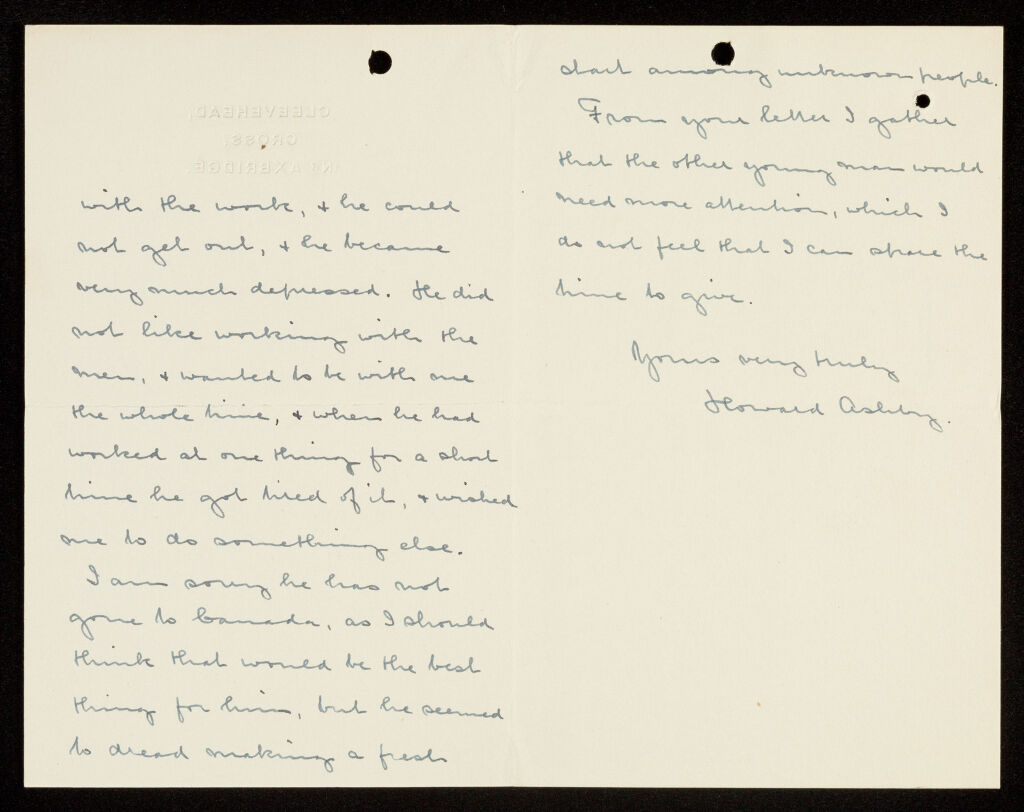 CLEEVEHEAD,
CROSS,
Nr AXBRIDGE.
with the work, & he could
not get out, & he became
very much depressed. He did
not like working with the
men, & wanted to be with me
the whole time, & when he had
worked at one thing for a short
time he got tired of it, & wished
me to do something else.
I am sorry he has not
gone to Canada, as I should
think that would be the best
thing for him, but he seemed
to dread making a fresh
start among unknown people.
From your letter I gather
that the other young man would
need more attention, which I
do not feel that I can spare the
time to give.
Yours very truly
Howard Ashby.